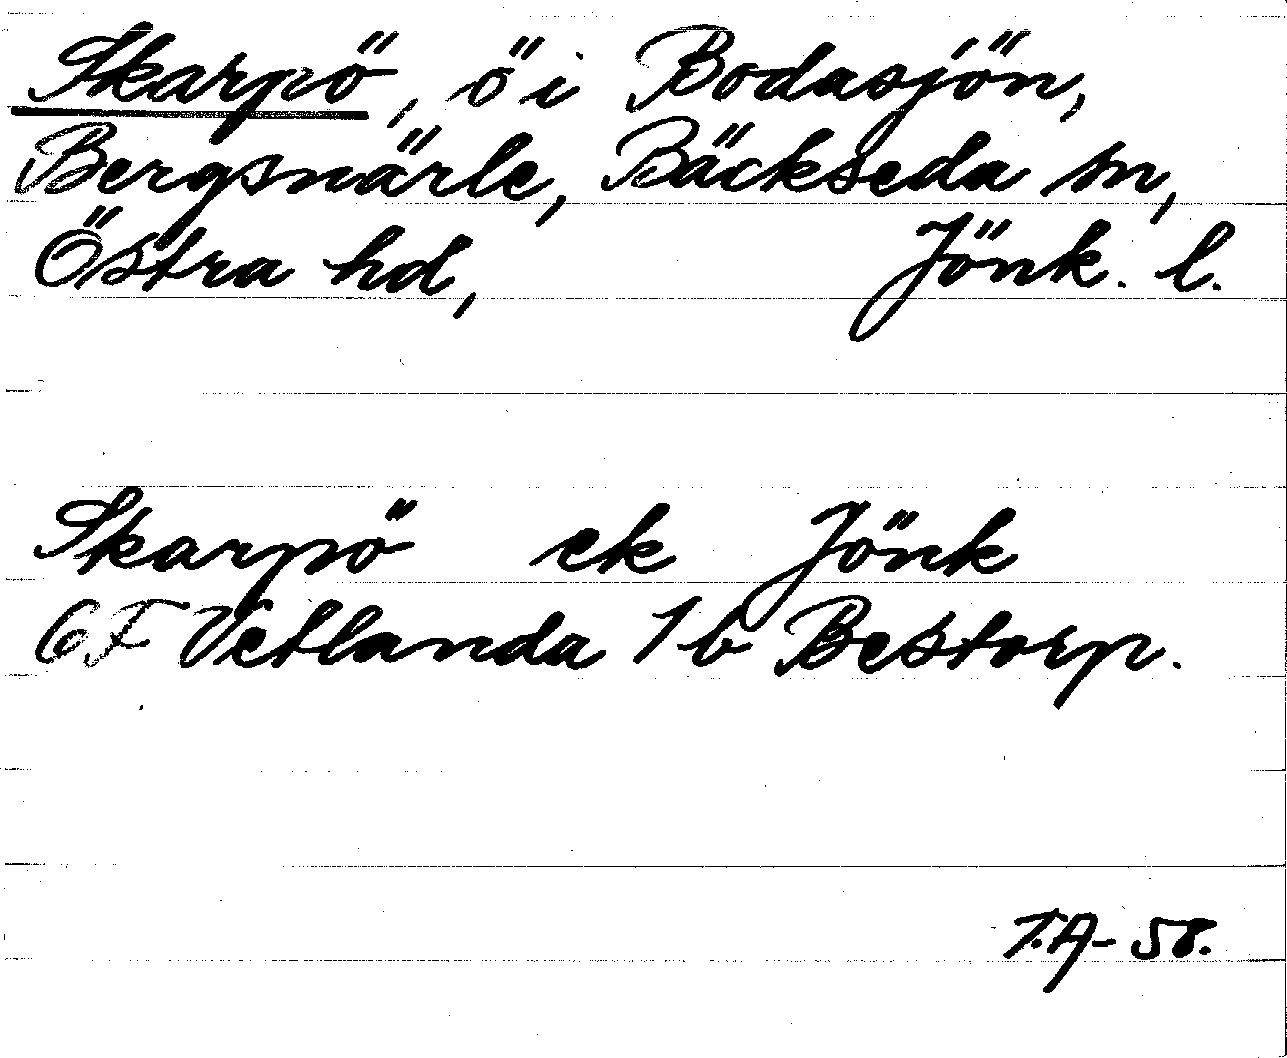 Skarpö, ö i Bodasjön,
Bergsnärle, Bäckseda sn,
Östra hd, Jönk. l.
Skarpö ek Jönk
6F Vetlanda 1b Bestorp.
T.A- 58.